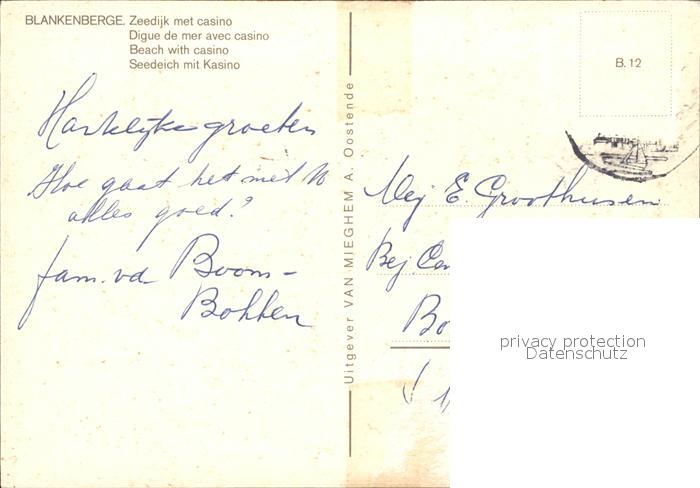 BLANKENBERGE. Zeedijk met casino
Digue de mer avec casino
Beach with casino
Seedeich mit Kasino
Hartelijke groeten
Hoe gaat het met U
alles goed?
fam. vd Boom-
Bohken
Uitgever VAN MIEGHEM A. Oostende
B. 12
Mej E. Groothusen
Bej. Cen
Bo
privacy protection
Datenschutz